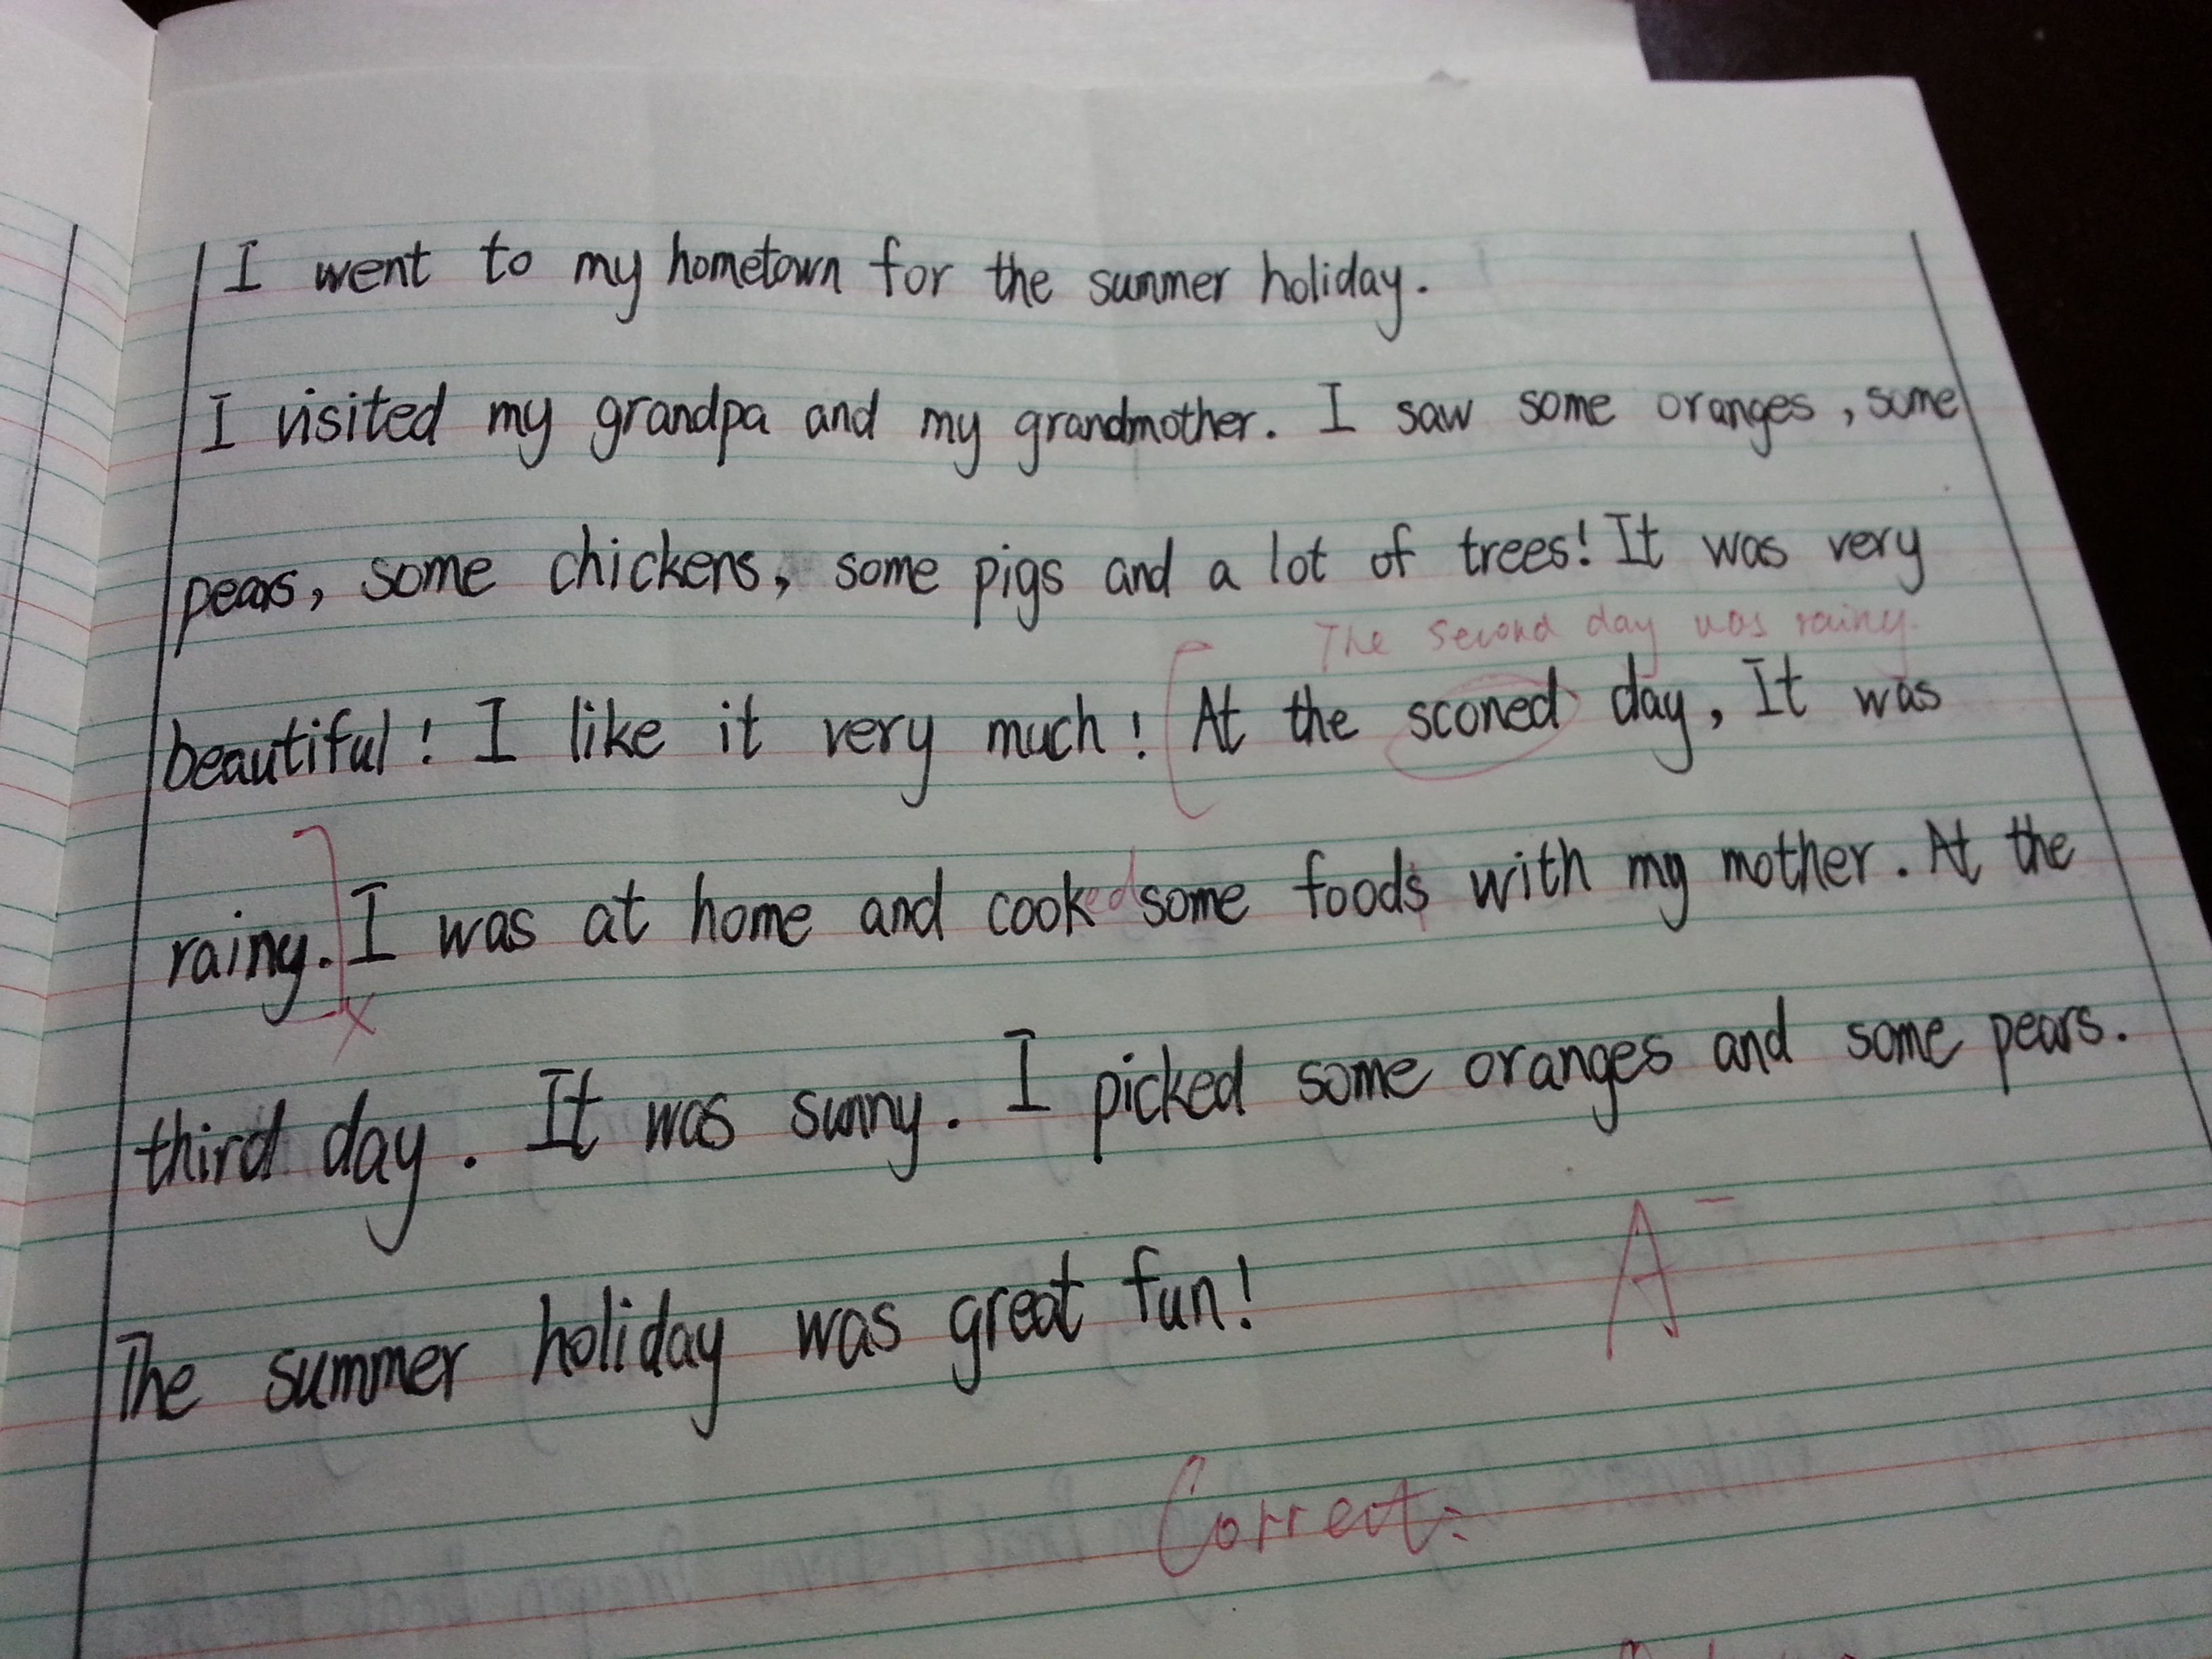 I went to my hometown for the summer holiday.
I visited my grandpa and my grandmother. I saw some oranges, some
pears, some chickens, some pigs and a lot of trees! It was very
The second day was rainy.
beautiful! I like it very much! At the sconed day, It was
rainy. I was at home and cooked some foods with my mother. At the
third day. It was sunny. I picked some oranges and some pears.
A-
The summer holiday was great fun!
Correct: